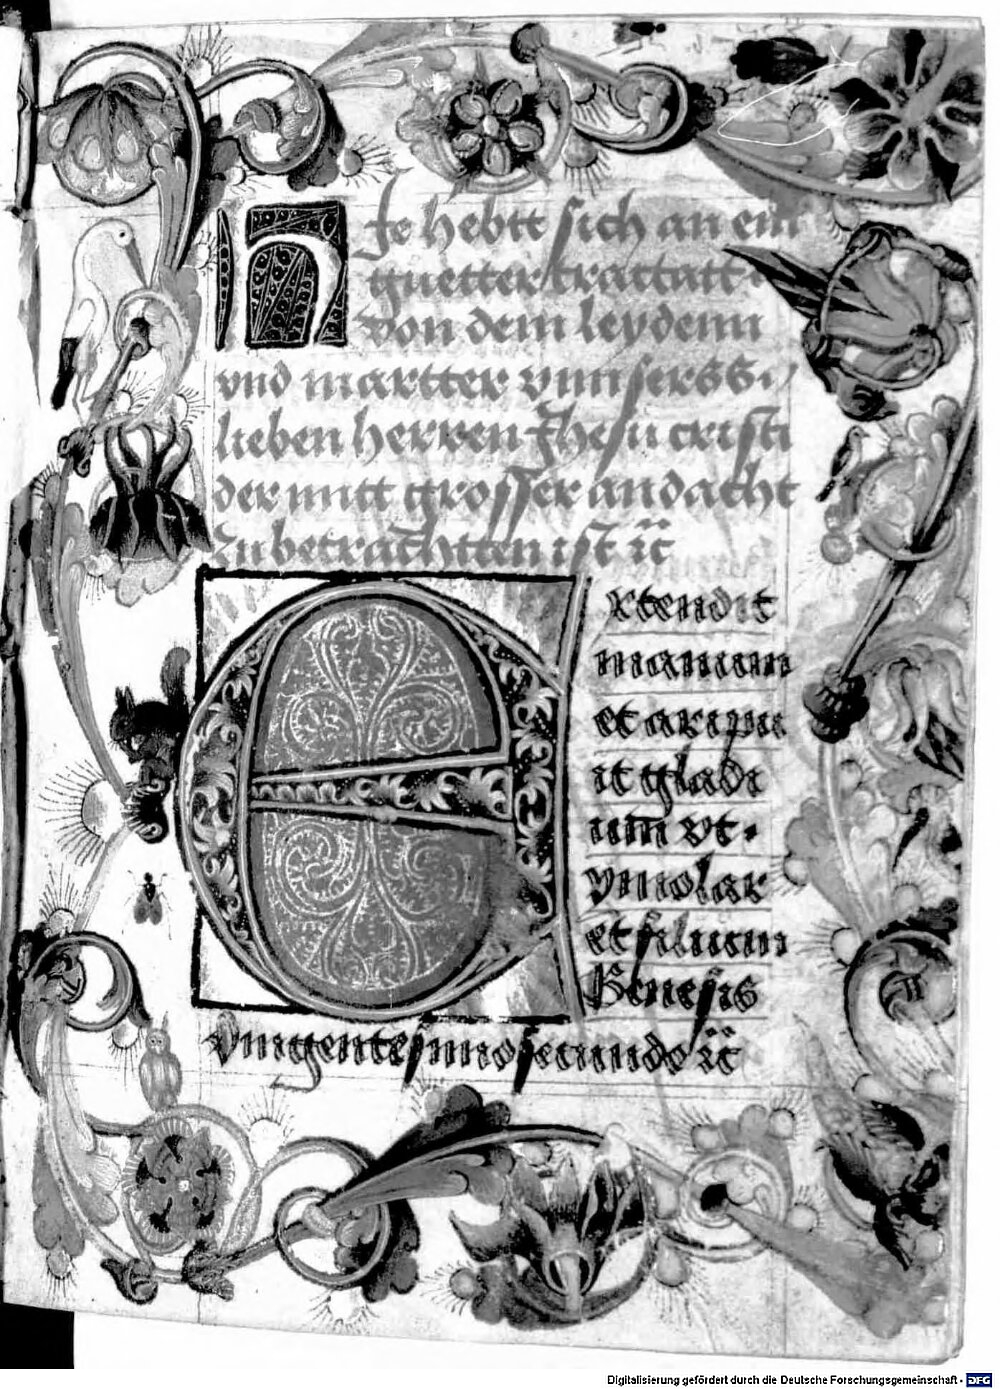 HJe hebtt sich an ein
guetter trattatt
von dem leydenn
vnd martter vnnserss
lieben herren Jhesu cristi
der mitt grosser andacht
zu betrachtten ist ꝛc
Extendit
manum
et aripu
it gladi
um vt
ymolar
et filium
Genesis
vnigentesimosecundo ꝛc
Digitalisierung gefördert durch die Deutsche Forschungsgemeinschaft - DFG